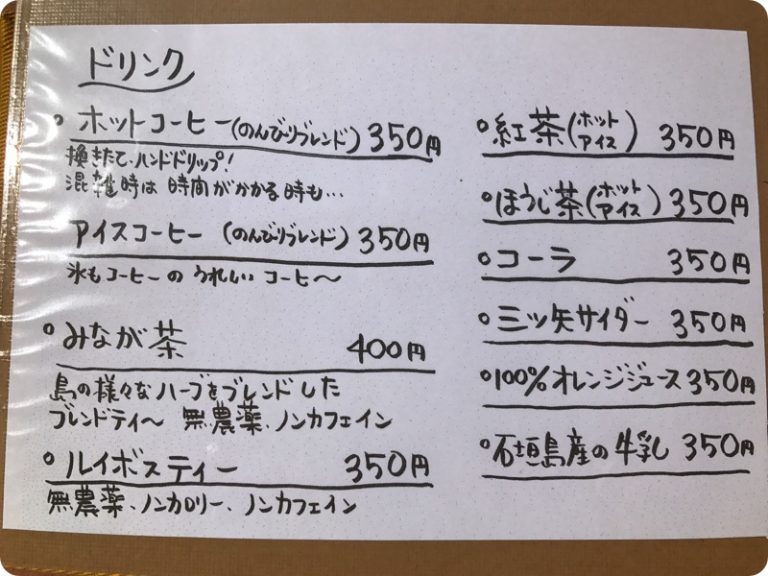 ドリンク
ホットコーヒー(のんびりブレンド) 350円
換きたて、ハンドドリップ!
混雑時は 時間がかかる時も…
アイスコーヒー (のんびりブレンド) 350円
氷もコーヒーの うれしい コーヒ〜
みなが茶 400円
島の様々なハーブをブレンドした
ブレンドティ〜 無農薬、ノンカフェイン
ルイボスティー 350円
無農薬、ノンカロリー、ノンカフェイン
紅茶(ホット アイス) 350円
ほうじ茶(ホット アイス) 350円
コーラ 350円
三ツ矢サイダー 350円
100%オレンジジュース 350円
石垣島産の牛乳 350円